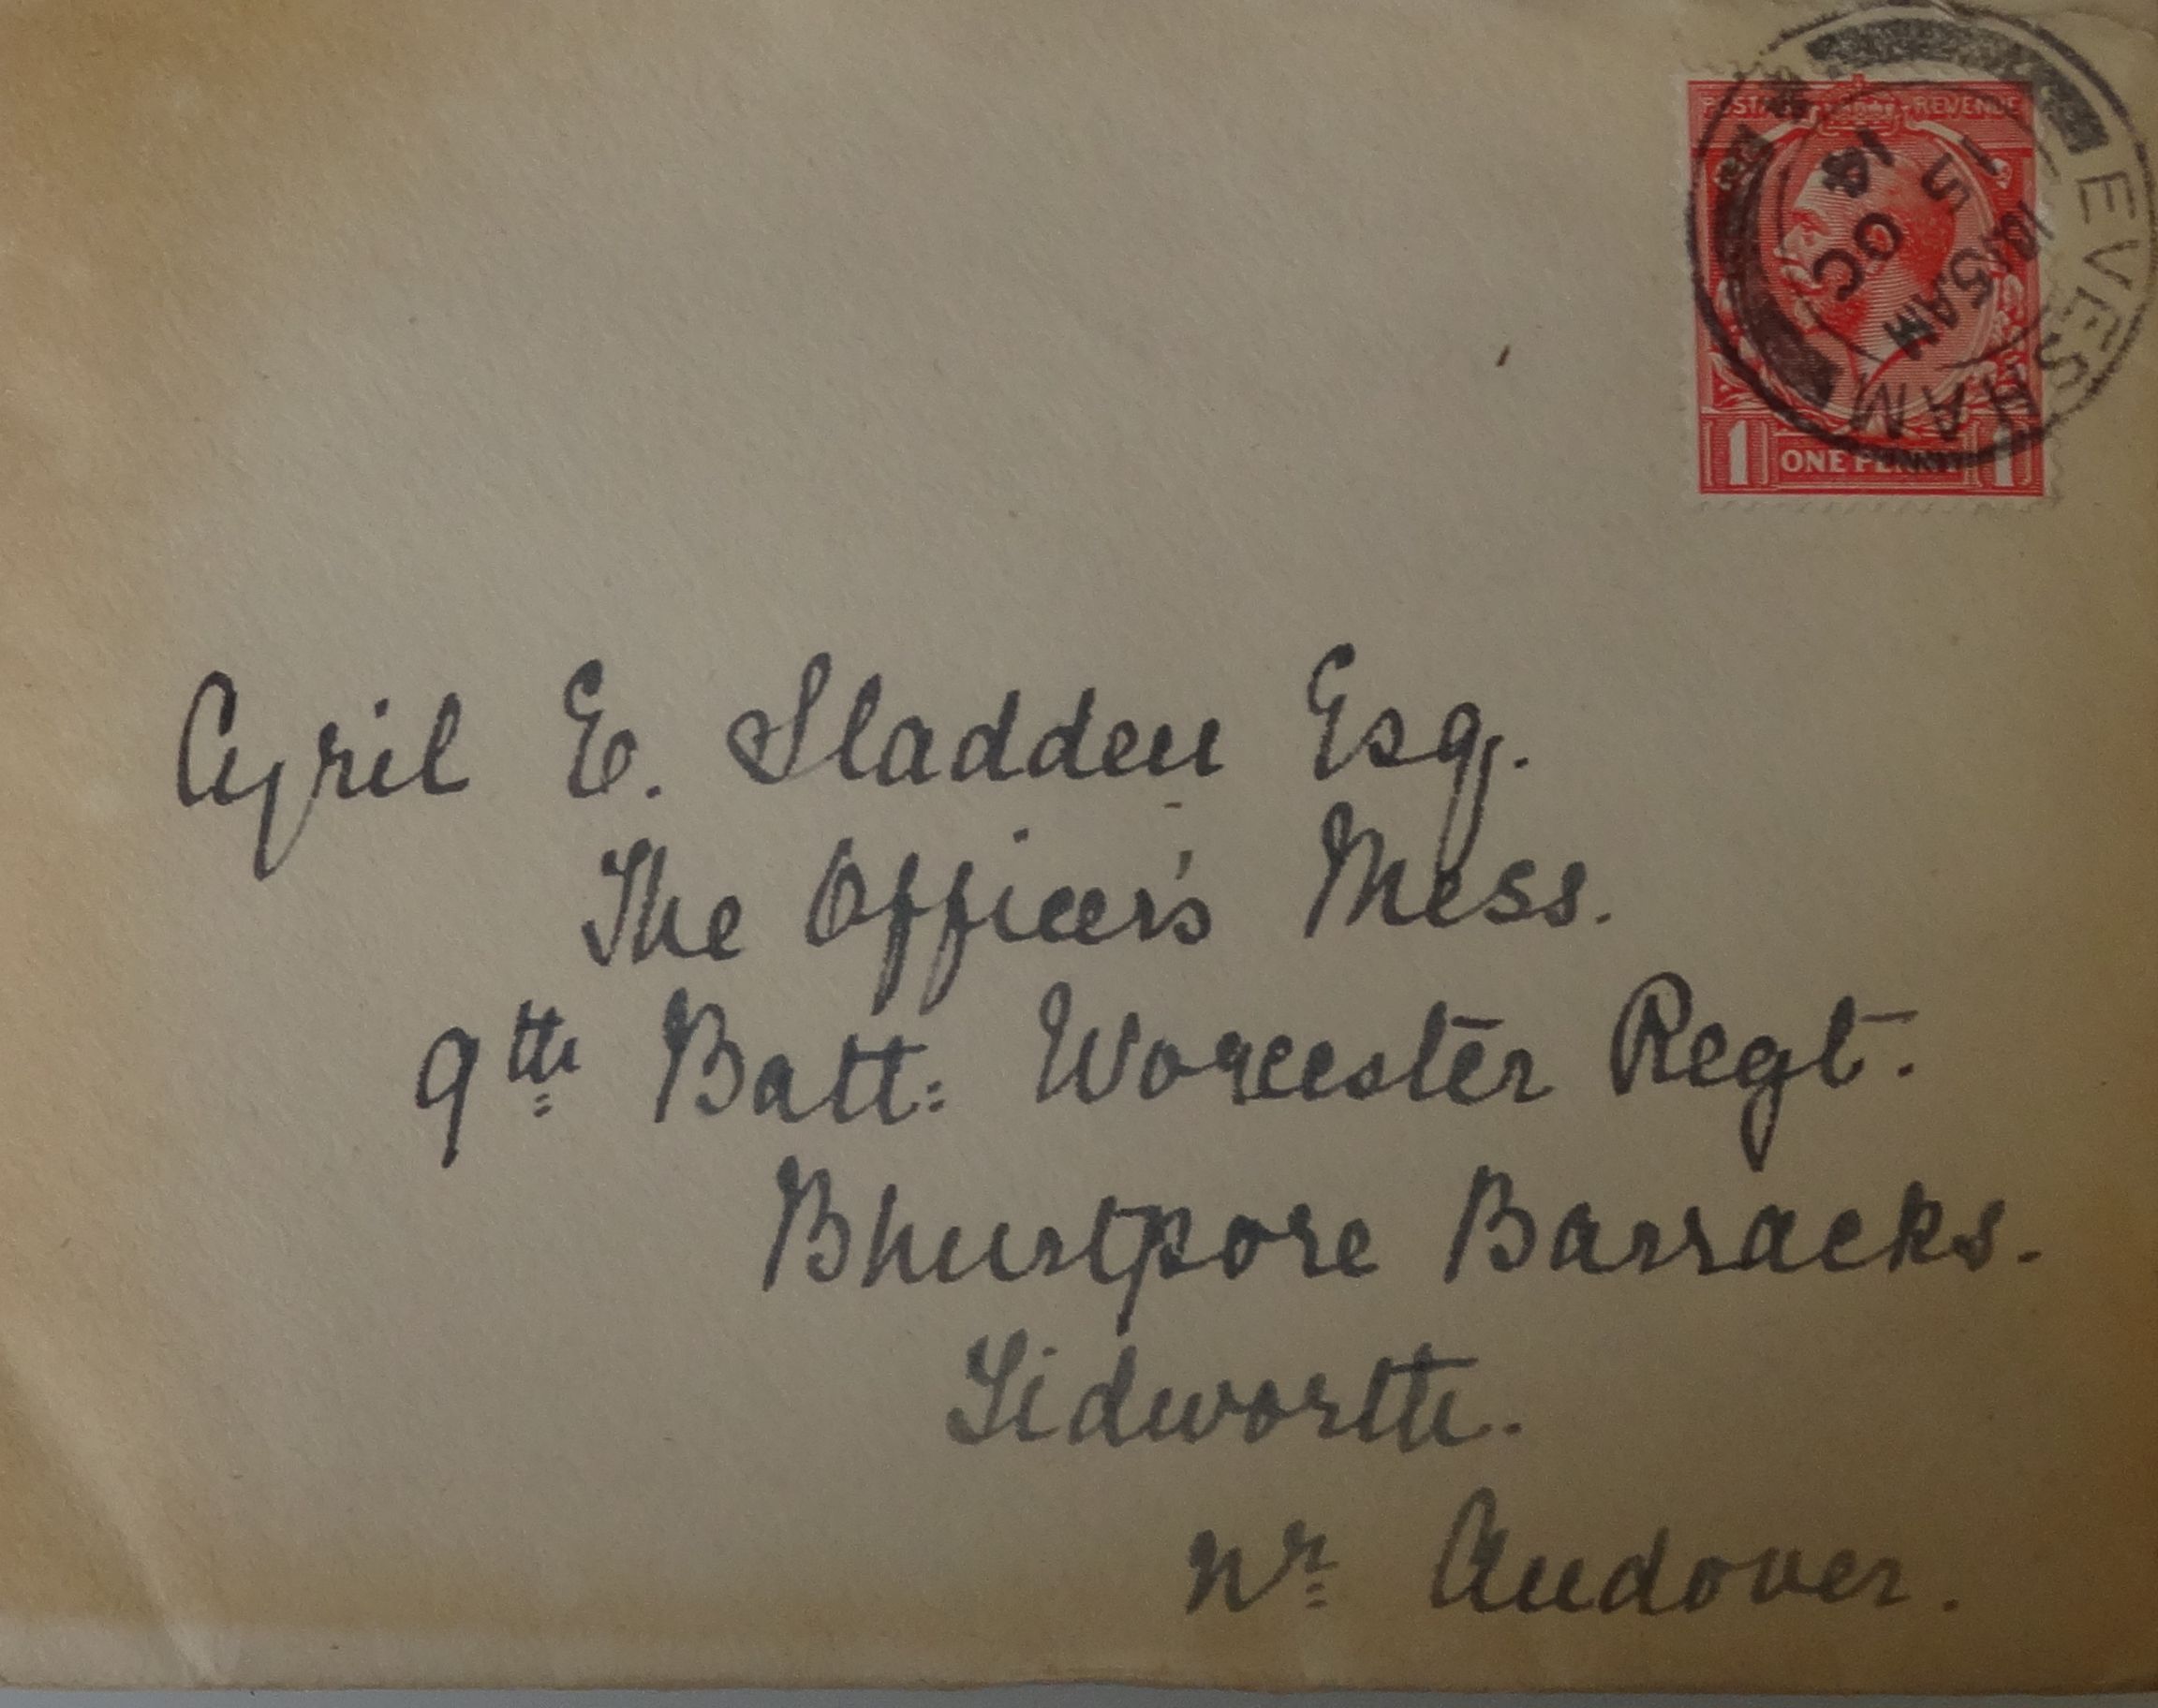 POSTAGE REVENUE
EVESHAM
10.15 AM
5 OC
14
1 ONE PENNY 1
Cyril E. Sladden Esq.
The Officer's Mess.
9th Batt: Worcester Regt.
Bhurtpore Barracks.
Tidworth.
Nr Andover.